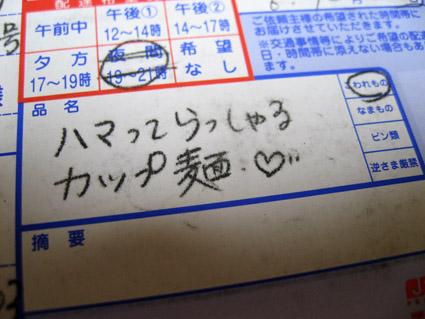 配達希望
午前中
午後①
12〜14時
午後②
14〜17時
夕方
17〜19時
夜間
19〜21時
希望
なし
ご依頼主様の希望された時間帯に
お届けさせていただきます。
※交通事情等によりご希望の配達
日・時間帯に添えない場合もあ
号
様
品名
ハマってらっしゃる
カップ麺♡
われもの
なまもの
ビン類
逆さま厳禁
摘要